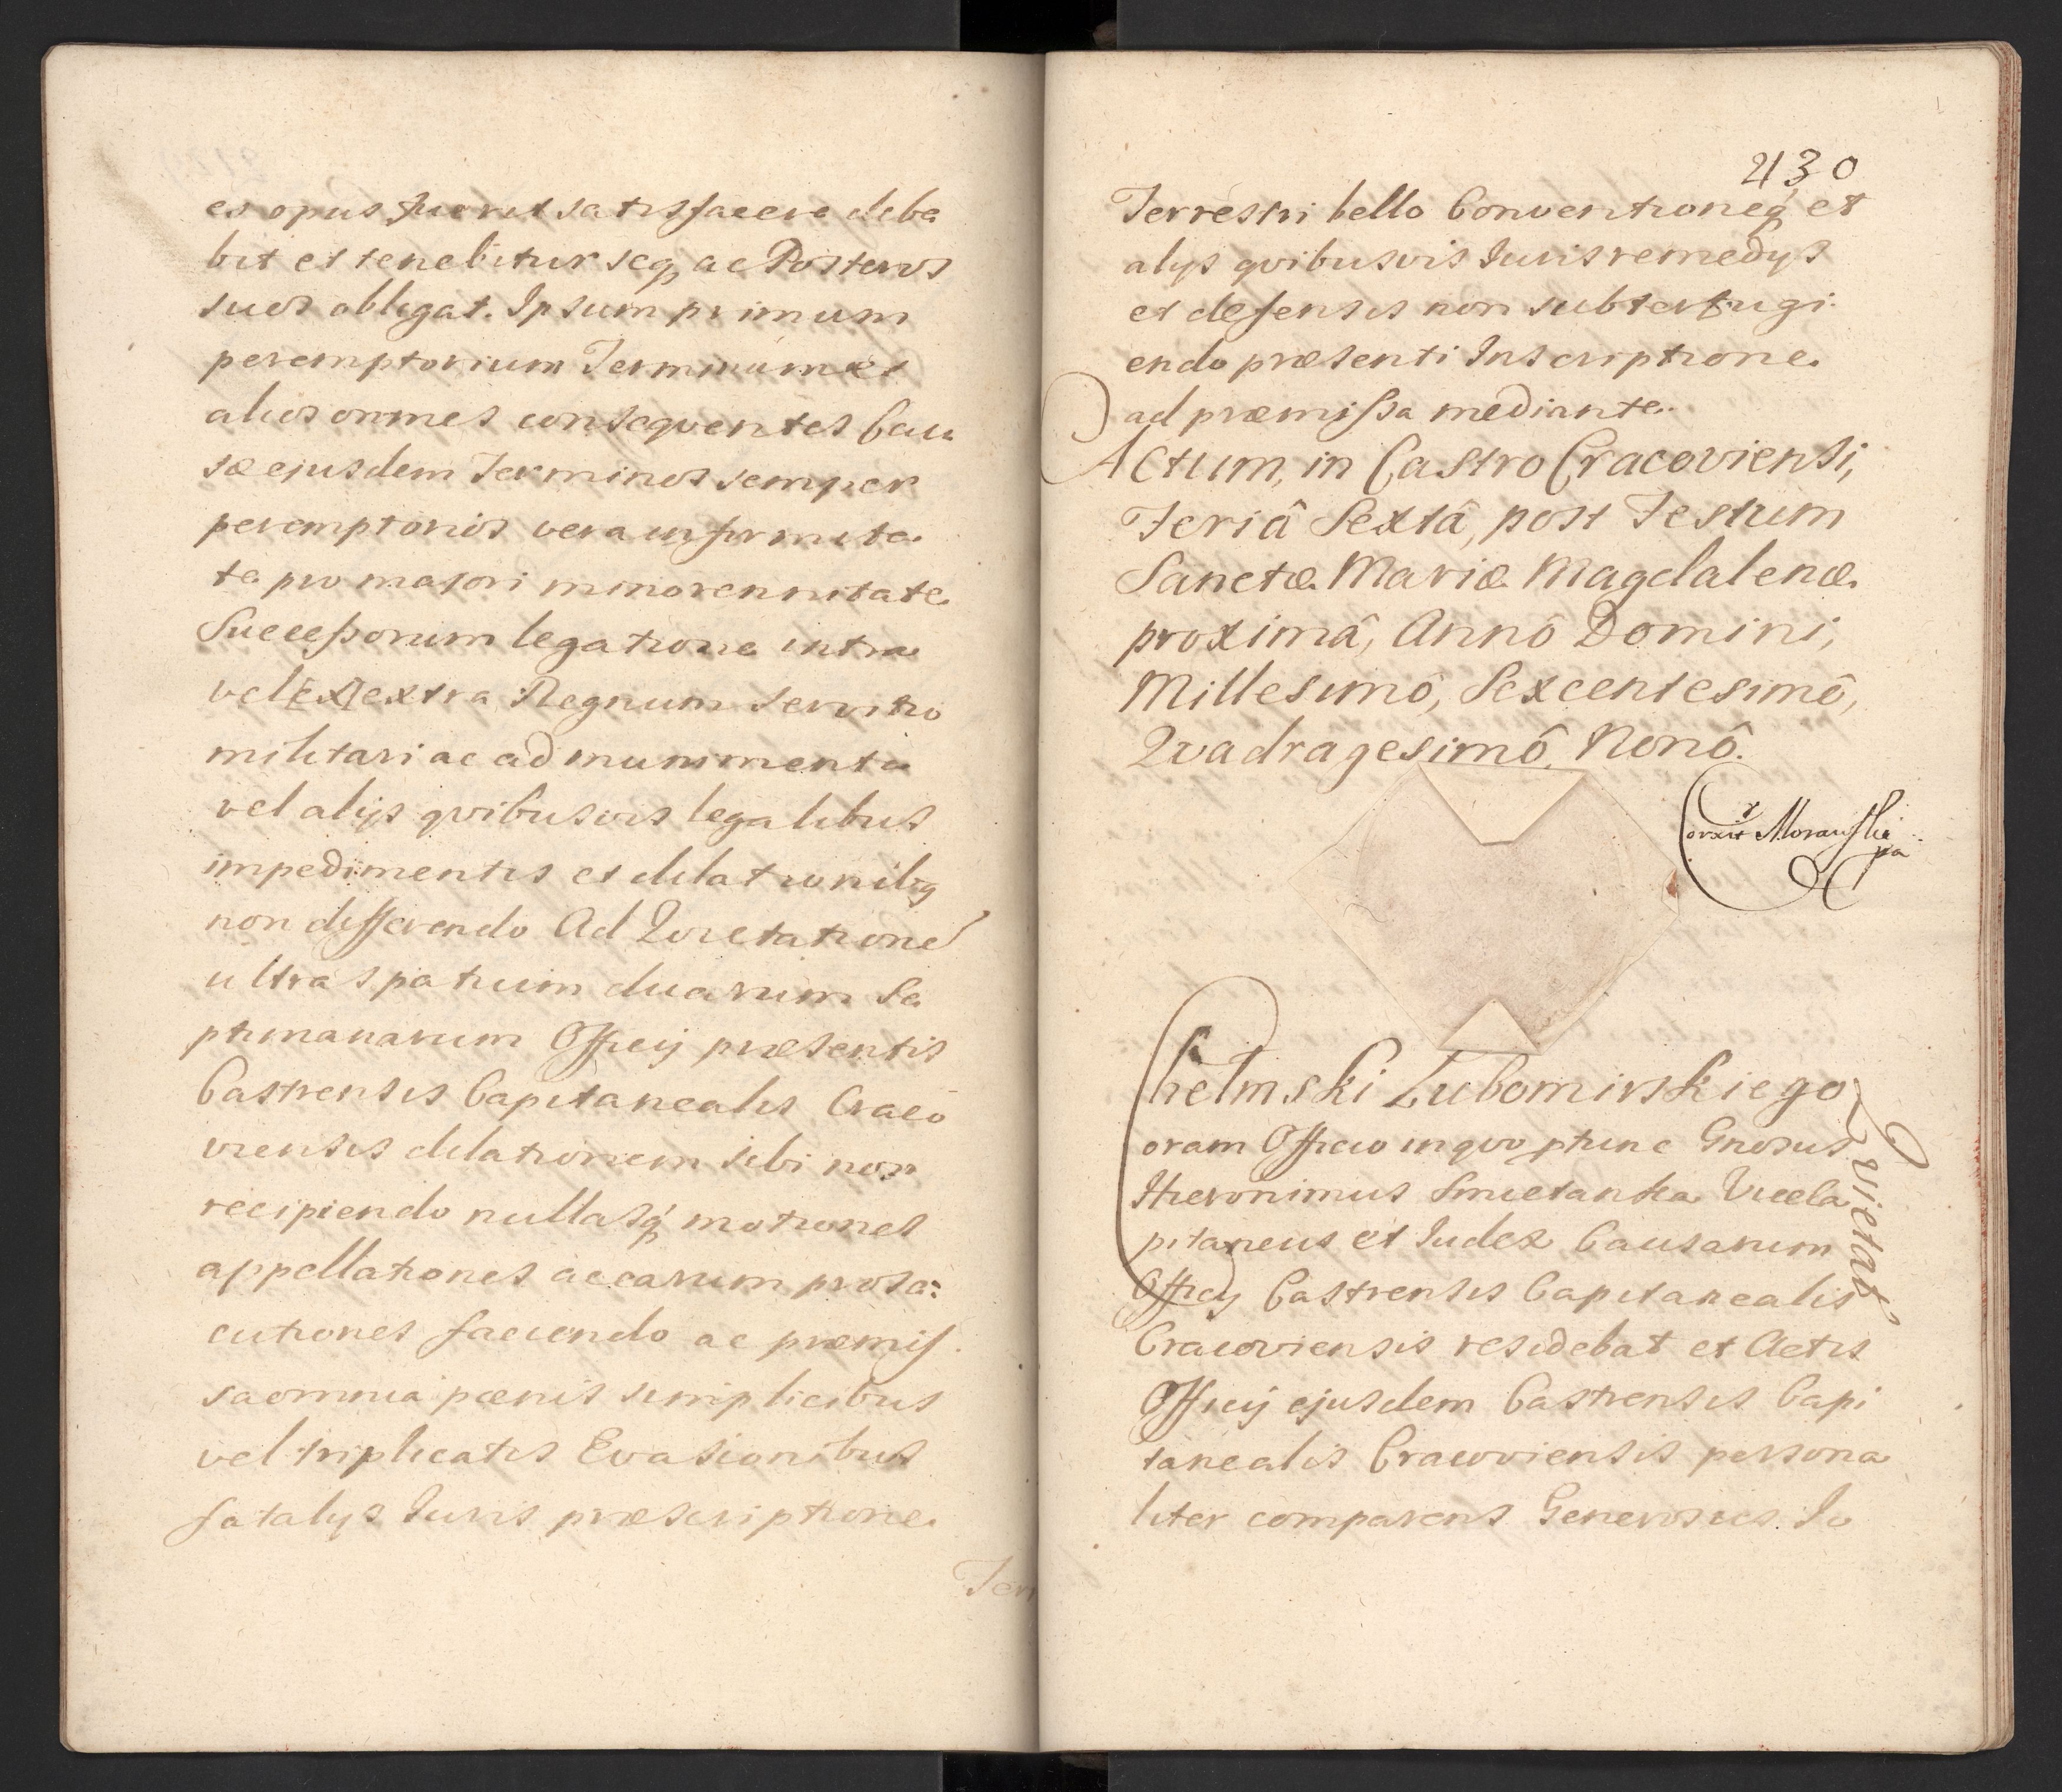 es opus fuerit satisfacere debe
bit et tenebitur seq, ac Posteros
suos obligat. Ipsum primum
peremptorium Terminum et
alios omnes conseqventes Cau
sæ ejusdem Terminos semper
peremptorios vera infirmita
te pro majori minorennitate
Successorum legatione intra
vel [ex] extra Regnum servitio
militari ac ad munimenta
vel alijs qvibusvis legalibus
impedimentis et dilationibq
non differendo Ad Qvietatione
ultra spatium duarum Se
ptimanarum Officij præsentis
Castrensis Capitanealis Craco
viensis dilationem sibi non
recipiendo nullasq motiones
appellationes acearum prose:
cutiones faciendo ac præmis
sa omnia pœnis simplicibus
vel triplicatis Evasionibus
fatalijs Iuris præscriptione
Terr
430
Terrestri bello Conventioneq et
alijs qvibusvis Iuris remedijs
et defensis non subterfugi
endo præsenti Inscriptione
ad præmissa mediante.
Actum, in Castro Cracoviensi,
Feriâ Sextâ, post Festum
Sanctæ Mariæ Magdalenæ
proximâ, Annô Domini,
Millesimô, Sexcentesimô,
Qvadragesimô, Nonô.
Corxit Morauski
Chełmski Lubomirskiego
Qvietat
oram Officio in qvo ptunc Gnosus
Hieronimus Smietanka Viceca
pitaneus et Iudex Causarum
Officij Castrensis Capitanealis
Cracoviensis residebat et Actis
Officij ejusdem Castrensis Capi
tanealis Cracoviensis persona
liter comparens Generosus Io